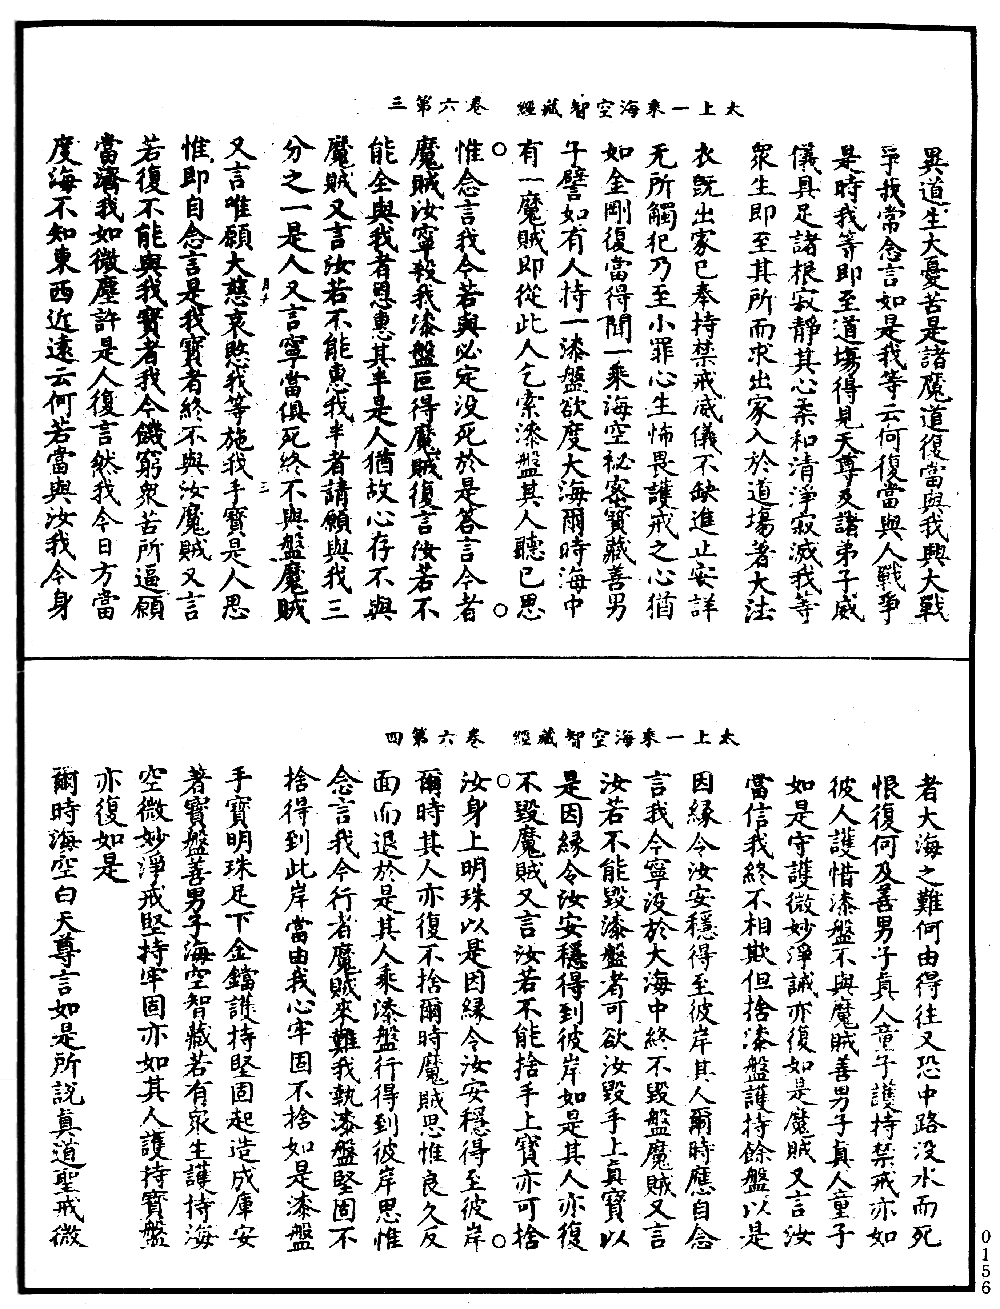 太上一乘海空智藏經　卷六第三
異道生大憂苦是諸魔道復當與我興大戰
爭我常念言如是我等云何復當與人戰爭
是時我等即至道場得見天尊及諸弟子威
儀具足諸根寂靜其心柔和清淨寂滅我等
眾生即至其所而求出家入於道場著大法
衣既出家已奉持禁戒威儀不缺進止安詳
无所觸犯乃至小罪心生怖畏護戒之心猶
如金剛復當得聞一乘海空祕密寶藏善男
子譬如有人持一漆盤欲度大海爾時海中
有一魔賊即從此人乞索漆盤其人聽已思
惟念言我今若與必定没死於是答言今者
魔賊汝寧殺我漆盤叵得魔賊復言汝若不
能全與我者恩惠其半是人猶故心存不與
魔賊又言汝若不能惠我半者請願與我三
分之一是人又言寧當俱死終不與盤魔賊
又言唯願大慈哀愍我等施我手寶是人思
惟即自念言是我寶者終不與汝魔賊又言
若復不能與我寶者我今饑窮眾苦所逼願
當濟我如微塵許是人復言然我今日方當
度海不知東西近遠云何若當與汝我今身
太上一乘海空智藏經　卷六第四
者大海之難何由得往又恐中路没水而死
恨復何及善男子真人童子護持禁戒亦如
彼人護惜漆盤不與魔賊善男子真人童子
如是守護微妙淨誡亦復如是魔賊又言汝
當信我終不相欺但捨漆盤護持餘盤以是
因緣令汝安穩得至彼岸其人爾時應自念
言我今寧没於大海中終不毀盤魔賊又言
汝若不能毀漆盤者可欲汝毀手上真寶以
是因緣令汝安穩得到彼岸如是其人亦復
不毀魔賊又言汝若不能捨手上寶亦可捨
汝身上明珠以是因緣令汝安穩得至彼岸
爾時其人亦復不捨爾時魔賊思惟良久反
面而退於是其人乘漆盤行得到彼岸思惟
念言我今行者魔賊來難我執漆盤堅固不
捨得到此岸當由我心牢固不捨如是漆盤
手寶明珠足下金鐺護持堅固起造成庫安
著寶盤善男子海空智藏若有眾生護持海
空微妙淨戒堅持牢固亦如其人護持寶盤
亦復如是
爾時海空白天尊言如是所說真道聖戒微
0156